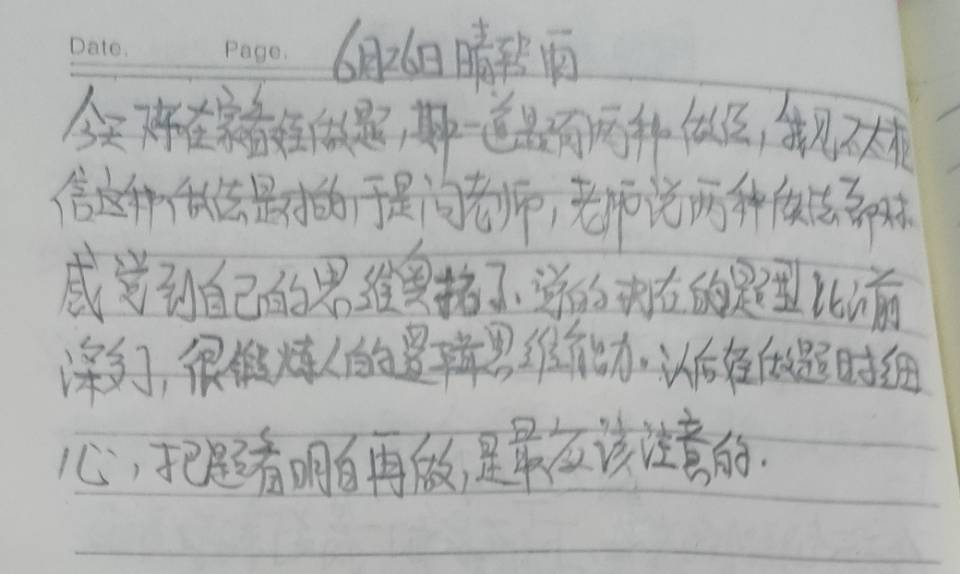 Date. Page. 6月26日 晴转雨
今天我在家看经做题,其中一道题有两种做法,我见不太相
信这种做法是对的,于是问老师,老师说两种做法都对
感觉到自己的思维开拓了.学的现在的题型比以前
深多了,很锻炼人的逻辑思维能力。以后在做题时细
心,把题看明白再做,是最应该注意的.